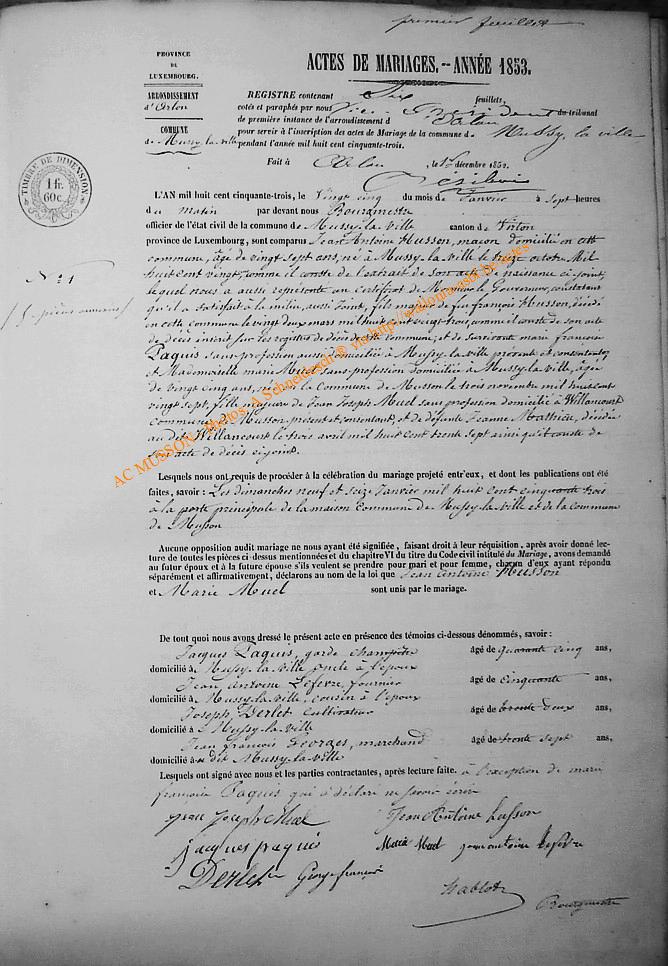 premier feuillet
PROVINCE
DE
LUXEMBOURG.
ARRONDISSEMENT
d'Arlon
COMMUNE
de Mussy-la-ville
ACTES DE MARIAGES.--ANNÉE 1853.
REGISTRE contenant Six feuillets,
cotés et paraphés par nous Vice-Président du tribunal
de première instance de l'arrondissement d'Arlon
pour servir à l'inscription des actes de Mariage de la commune de Mussy-la-ville
pendant l'année mil huit cent cinquante-trois.
Fait à Arlon, le décembre 1852.
TIMBRE DE DIMENSION
1 fr.
60c.
L'AN mil huit cent cinquante-trois, le Vingt cinq du mois de Janvier à sept heures
du matin par devant nous Bourgmestre
officier de l'état civil de la commune de Mussy-la-ville canton de Virton
province de Luxembourg, sont comparus Jean Antoine Husson, maçon domicilié en cette
commune, âgé de vingt sept ans, né à Mussy-la-ville le treize octobre Mil
huit cent vingt comme il conste de l'extrait de son acte de naissance ci-joint,
lequel nous a aussi représenté un certificat de Monsieur le Gouverneur, constatant
qu'il a satisfait à la milice, aussi joint, fils majeur de feu françois Husson, décédé
en cette commune le vingt deux mars mil huit cent vingt trois, comme il conste de son acte
de décès inscrit sur les registres de décès de cette commune, et de survivante marie françoise
Paquis sans profession aussi domiciliée à Mussy-la-ville présente et consentante,
et Mademoiselle marie Muel sans profession domiciliée à Mussy-la-ville, âgée
de vingt cinq ans, née en la Commune de Musson le trois novembre mil huit cent
vingt sept, fille majeure de Jean Joseph Muel sans profession domicilié à Willancourt
commune de Musson présent et consentant, et de défunte Jeanne Mathieu, décédée
au dit Willancourt le trois avril mil huit cent trente sept ainsi qu'il conste de
son acte de décès ci-joint.
N° 1
(5 pièces annexées)
Lesquels nous ont requis de procéder à la célébration du mariage projeté entr'eux, et dont les publications ont été
faites, savoir : Les dimanches neuf et seize Janvier mil huit cent cinquante trois
à la porte principale de la maison Commune de Mussy-la-ville et de la Commune
de Musson
Aucune opposition audit mariage ne nous ayant été signifiée, faisant droit à leur réquisition, après avoir donné lec-
ture de toutes les pièces ci-dessus mentionnées et du chapitre VI du titre du Code civil intitulé du Mariage, avons demandé
au futur époux et à la future épouse s'ils veulent se prendre pour mari et pour femme, chacun d'eux ayant répondu
séparément et affirmativement, déclarons au nom de la loi que Jean Antoine Husson
et Marie Muel sont unis par le mariage.
De tout quoi nous avons dressé le présent acte en présence des témoins ci-dessous dénommés, savoir :
Jacques Paquis, garde champêtre âgé de quarante cinq ans,
domicilié à Mussy-la-ville oncle à l'époux
Jean Antoine Lefevre, journier âgé de cinquante ans,
domicilié à Mussy-la-ville, cousin à l'époux
Joseph Derlet cultivateur âgé de trente deux ans,
domicilié à Mussy-la-ville
Jean françois Georges, marchand âgé de trente sept ans,
domicilié à dit Mussy-la-ville
Lesquels ont signé avec nous et les parties contractantes, après lecture faite. à l'exception de marie
françoise Paquis qui a déclaré ne savoir écrire
Jean Joseph Muel Jean Antoine husson
jacques paquis Marie Muel jean antoine lefevre
Derlet George françois
Bourgmestre
AC MUSSON - Photos: A Schneidesch @ via http://wallonica